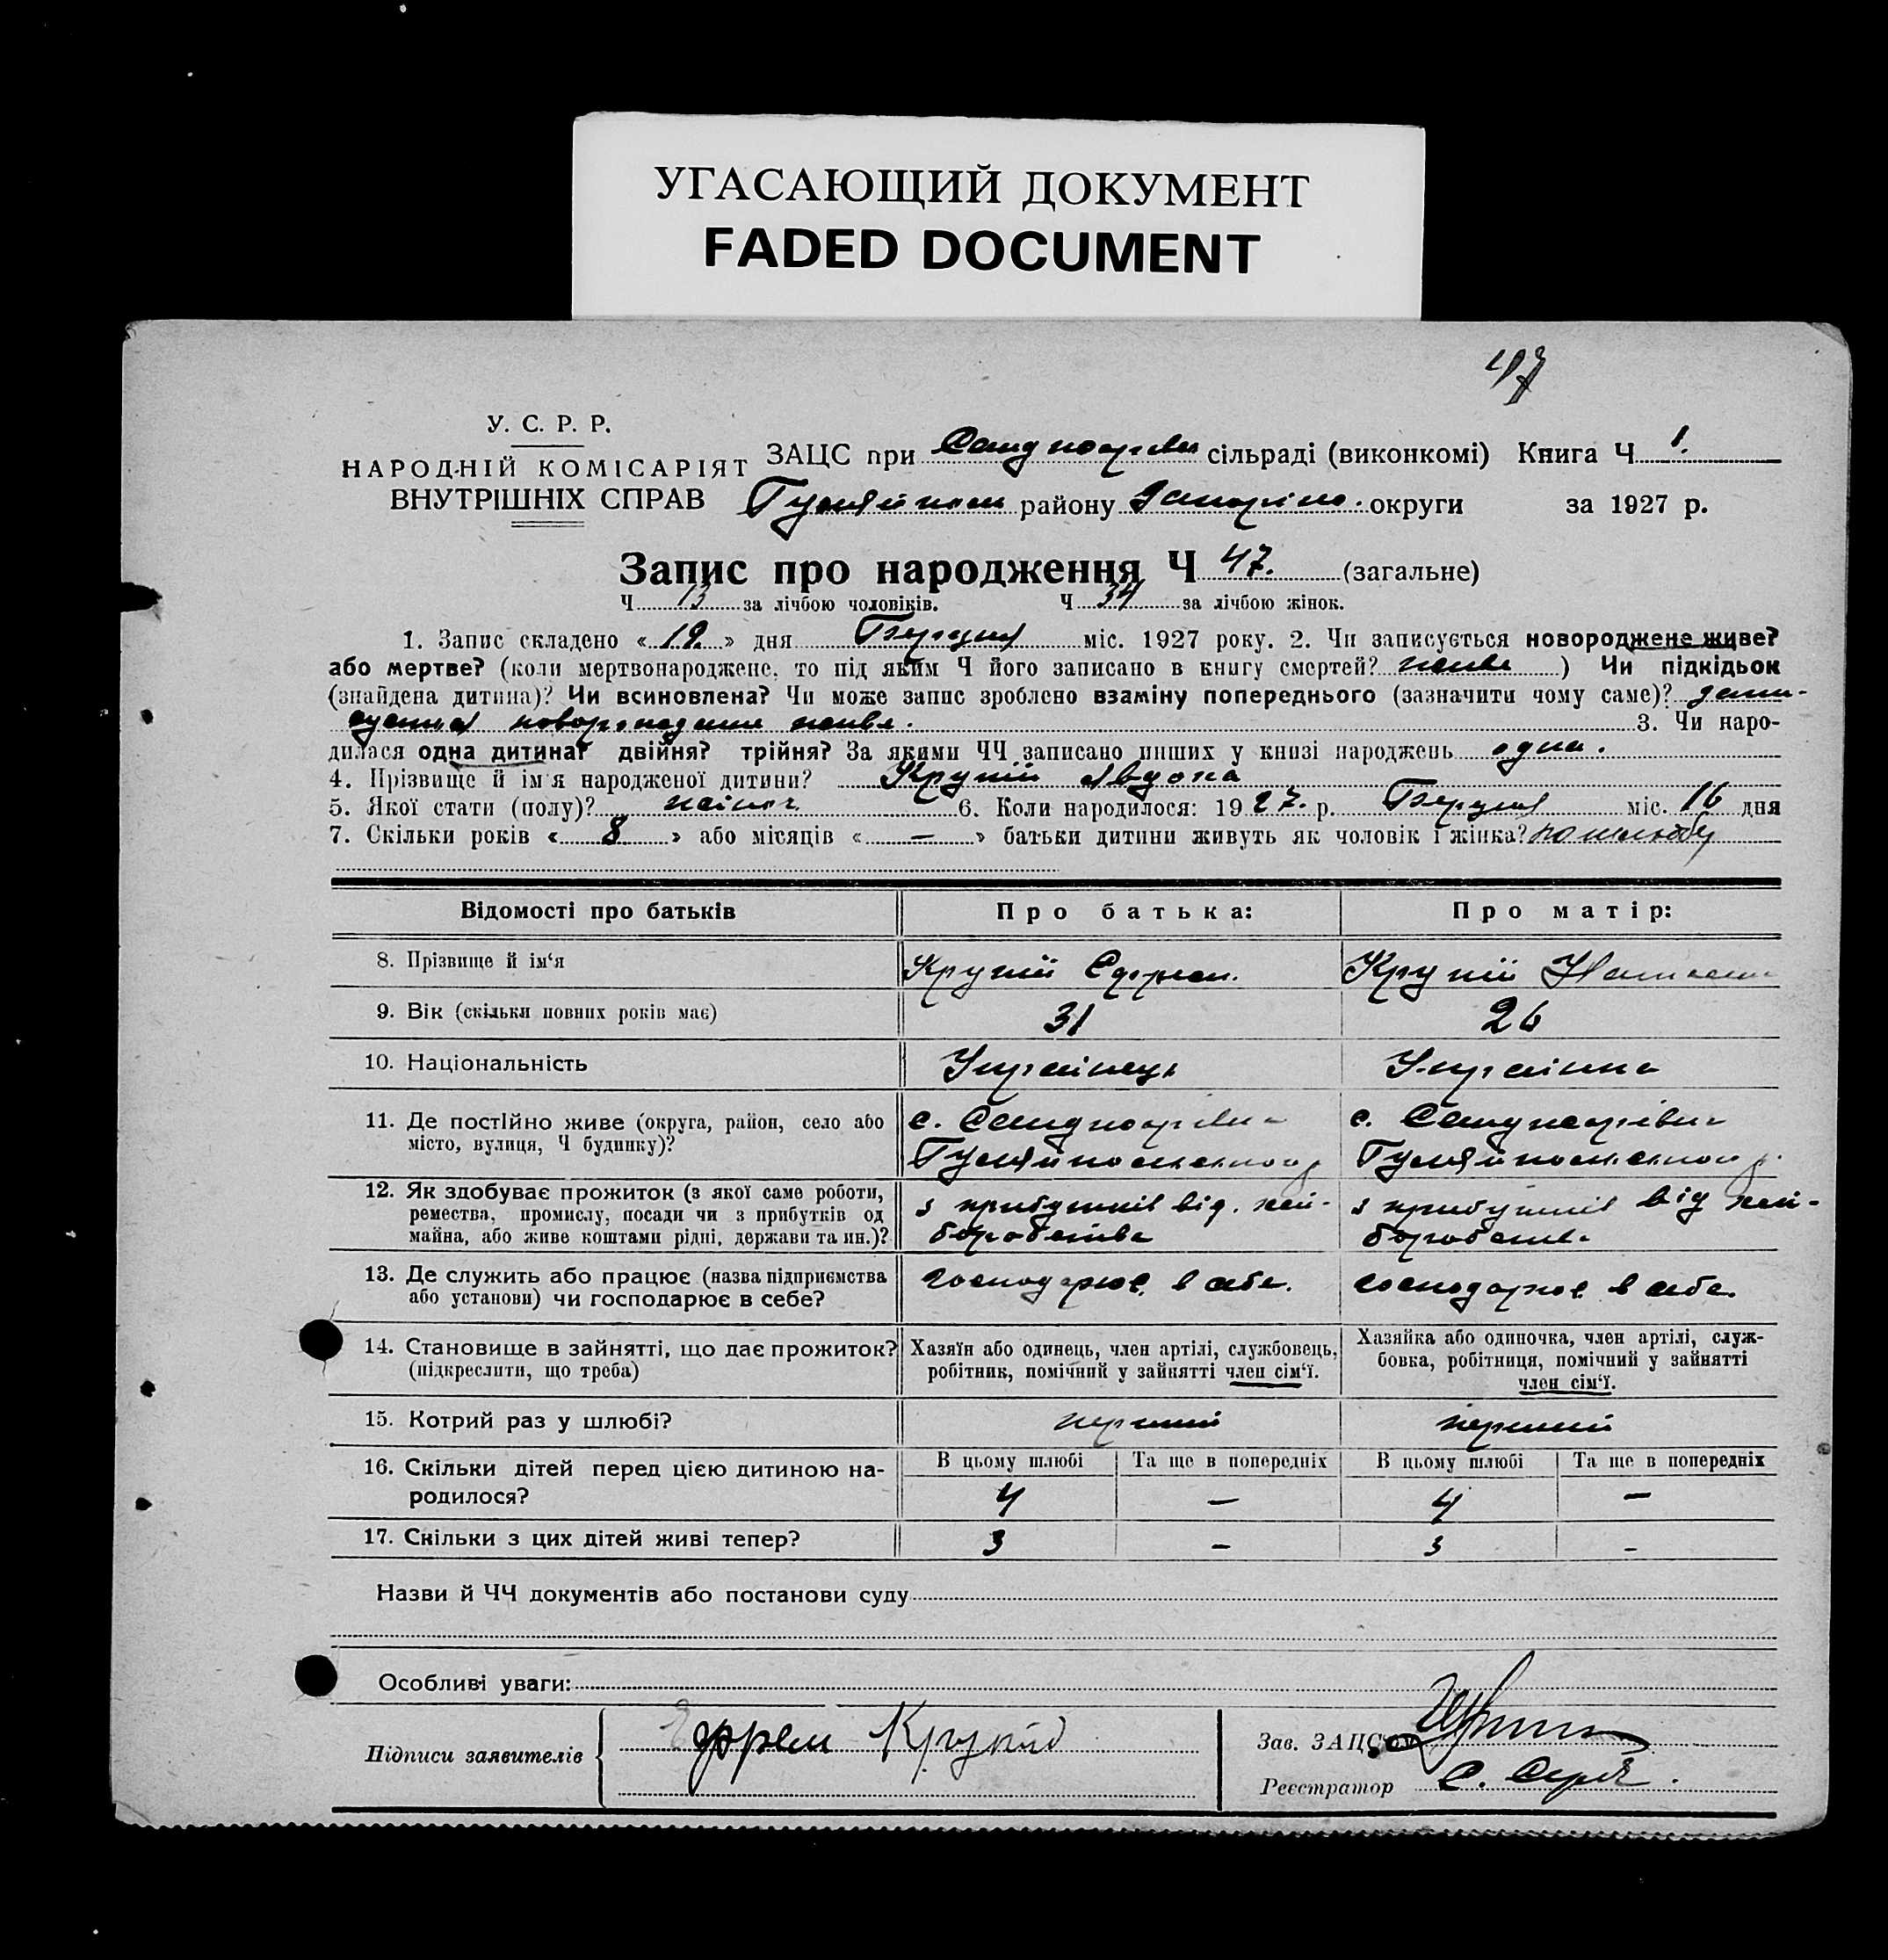 УГАСАЮЩИЙ ДОКУМЕНТ
FADED DOCUMENT
47
У. С. Р. Р.
НАРОДНІЙ КОМІСАРІЯТ
ВНУТРІШНІХ СПРАВ
ЗАЦС при сільраді (виконкомі) Книга Ч 1.
району округи за 1927 р.
Запис про народження Ч 47. (загальне)
Ч 13 за лічбою чоловіків. Ч 34 за лічбою жінок.
1. Запис складено « 19. » дня міс. 1927 року. 2. Чи записується новороджене живе?
або мертве? (коли мертвонароджене, то під яким Ч його записано в книгу смертей? живе ) Чи підкідьок
(знайдена дитина)? Чи всиновлена? Чи може запис зроблено взаміну попереднього (зазначити чому саме)? запи-
сується новороджене живе. 3. Чи наро-
дилася одна дитина? двійня? трійня? За якими ЧЧ записано инших у книзі народжень одна.
4. Прізвище й ім'я народженої дитини? Крупій Явдоха
5. Якої стати (полу)? жіноч. 6. Коли народилося: 1927. р. міс. 16 дня
7. Скільки років « 8 » або місяців « — » батьки дитини живуть як чоловік і жінка? по шлюбу
Відомості про батьків Про батька: Про матір:
8. Прізвище й ім'я Крупій Єфрем. Крупій
9. Вік (скільки повних років має) 31 26
10. Національність Українець Українка
11. Де постійно живе (округа, район, село або с. с.
місто, вулиця, Ч будинку)?
12. Як здобуває прожиток (з якої саме роботи, з прибутків від. хлі- з прибутків від хлі-
ремества, промислу, посади чи з прибутків од боробства боробства
майна, або живе коштами рідні, держави та ин.)?
13. Де служить або працює (назва підприємства господарює в себе. господарює в себе.
або установи) чи господарює в себе?
14. Становище в зайнятті, що дає прожиток? Хазяїн або одинець, член артілі, службовець, Хазяйка або одиночка, член артілі, служ-
(підкреслити, що треба) робітник, помічний у зайнятті член сім'ї. бовка, робітниця, помічний у зайнятті
член сім'ї.
15. Котрий раз у шлюбі? перший перший
16. Скільки дітей перед цією дитиною на- В цьому шлюбі Та ще в попередніх В цьому шлюбі Та ще в попередніх
родилося? 4 — 4 —
17. Скільки з цих дітей живі тепер? 3 — 3 —
Назви й ЧЧ документів або постанови суду
Особливі уваги:
Підписи заявителів Єфрем Крупій Зав. ЗАЦС'ом
Реєстратор